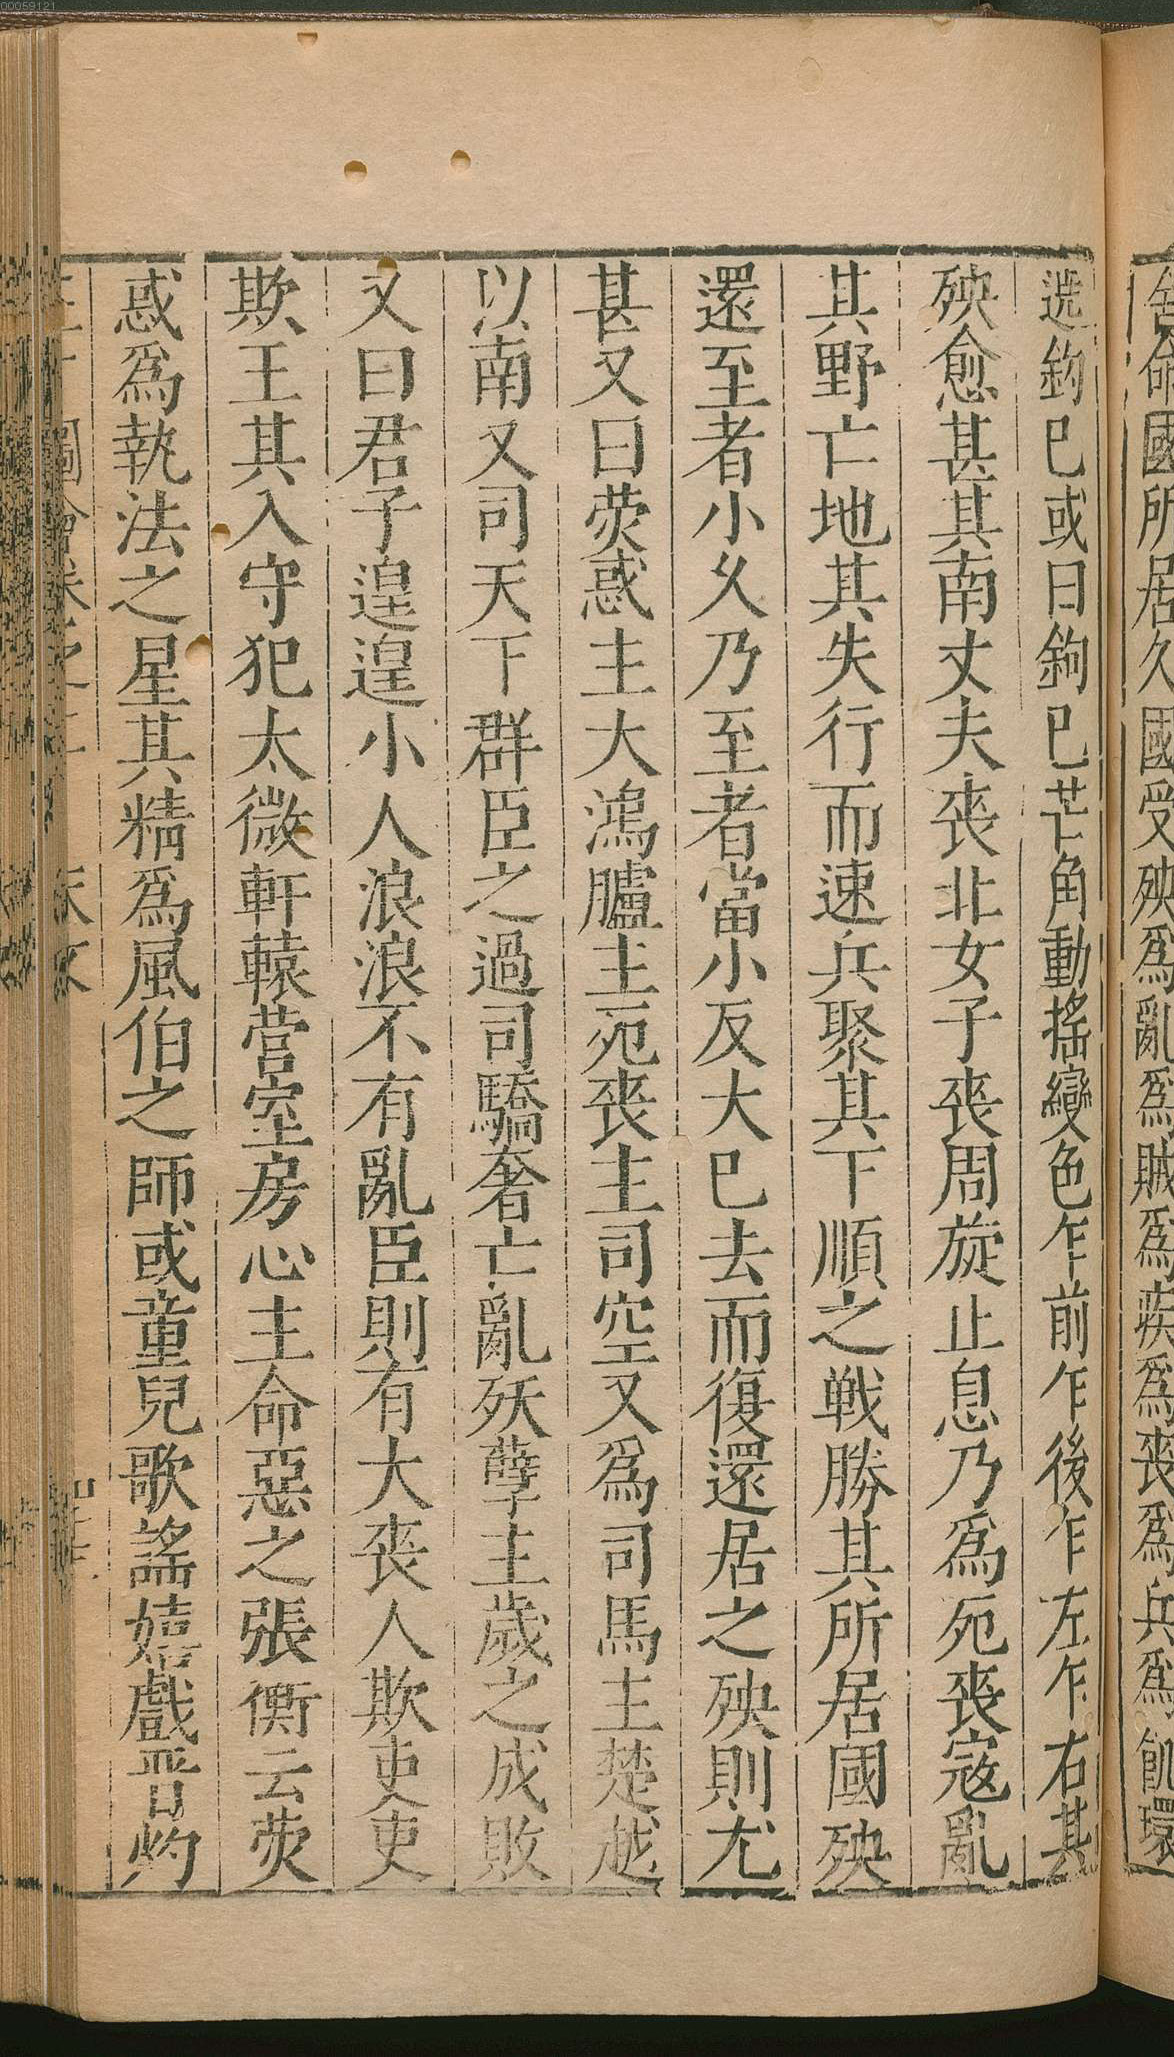 舍命國所居久國受殃為亂為賊為疾為喪為兵為飢環
遶鈎巳或曰鉤巳芒角動搖變色乍前乍後乍左乍右其
殃愈甚其南丈夫喪北女子喪周旋止息乃為死喪寇亂
其野亡地其失行而速兵聚其下順之戰勝其所居國殃
還至者小久乃至者當小反大巳去而復還居之殃則尤
甚又曰熒惑主大鴻臚主死喪主司空又為司馬主楚越
以南又司天下群臣之過司驕奢亡亂殀孽主歲之成敗
又曰君子遑遑小人浪浪不有亂臣則有大喪人欺吏吏
欺王其入守犯太微軒轅營室房心主命惡之張衡云熒
惑為執法之星其精為風伯之師或童兒歌謠嬉戲晋灼
圖會
00059121